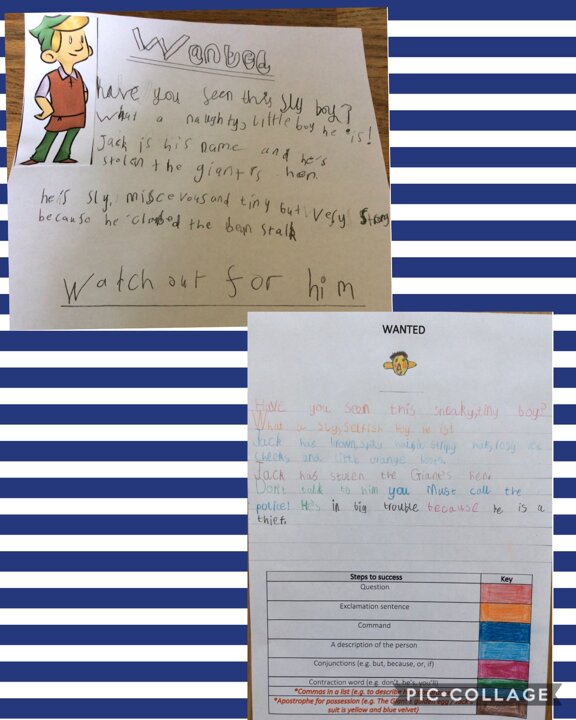 Wanted
have you seen this sly boy?
What a naughty, little boy he is!
Jack is his name and he's
stolen the giant is hen.
he is sly, miscevous and tiny but very strong
because he climbed the bean stalk
Watch out for him
WANTED
Have you seen this sneaky, tiny boy?
What a sly, selfish boy he is!
Jack has brown, spiky hair, a stripy hat, rosy red
cheeks and little orange boots.
Jack has stolen the Giant's hen.
Don't talk to him you must call the
police! He's in big trouble because he is a
thief.
Steps to success Key
Question
Exclamation sentence
Command
A description of the person
Conjunctions (e.g. but, because, or, if)
Contraction word (e.g. don't, he's, you'll)
*Commas in a list (e.g. to describe
*Apostrophe for possession (e.g. The Giant's golden egg / Jack's
suit is yellow and blue velvet)
PIC•COLLAGE